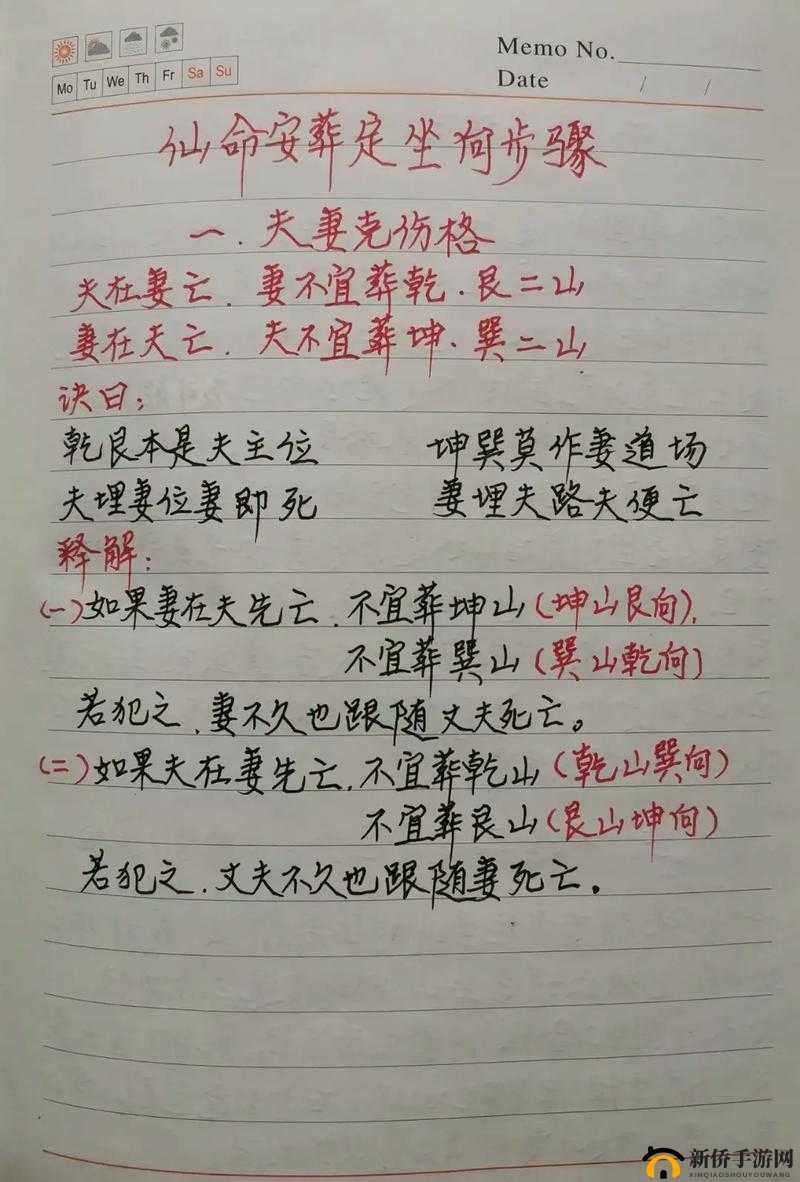 Memo No.
Mo Tu We Th Fr Sa Su
Date / /
仙命安葬定坐向步骤
一.夫妻克伤格
夫在妻亡.妻不宜葬乾.艮二山
妻在夫亡.夫不宜葬坤.巽二山
诀曰:
乾艮本是夫主位 坤巽莫作妻道场
夫埋妻位妻即死 妻埋夫路夫便亡
释解:
(一)如果妻在夫先亡.不宜葬坤山(坤山艮向),
不宜葬巽山(巽山乾向)
若犯之.妻不久也跟随丈夫死亡。
(二)如果夫在妻先亡.不宜葬乾山(乾山巽向)
不宜葬艮山(艮山坤向)
若犯之.丈夫不久也跟随妻死亡。
新侨手游网
XINQIAOSHOUYOUWANG